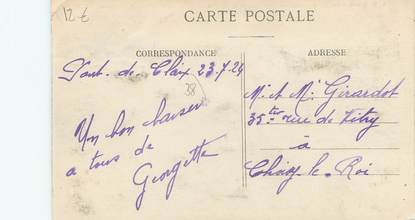 12 €
CARTE POSTALE
CORRESPONDANCE
ADRESSE
Pont-de-Claix 23-7-24
38
Un bon baiser
a tous de
Georgette
M. et M. Girardot
35 ter rue de Vitry
à
Choisy-le-Roi